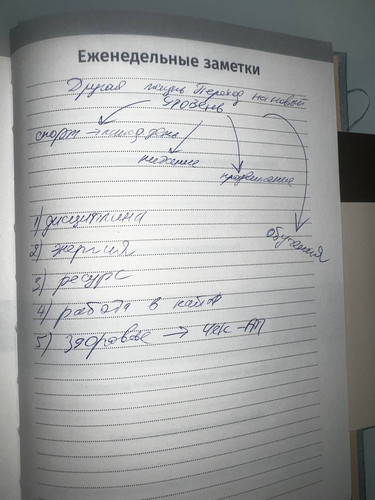 Еженедельные заметки
Другая жизнь Переход на новый
уровень
спорт → каждый день
питание
продвижение
обучения
1) дисциплина
2) энергия
3) ресурс
4) работа в кайф
5) Здоровье → Чек-АП